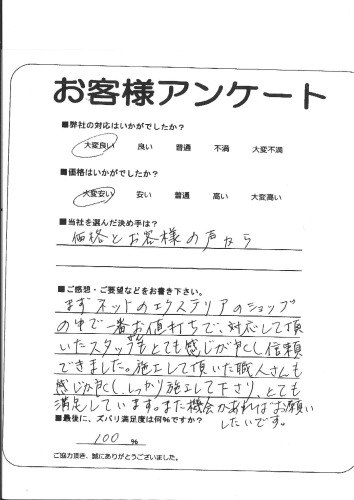 お客様アンケート
■弊社の対応はいかがでしたか?
大変良い 良い 普通 不満 大変不満
■価格はいかがでしたか?
大変安い 安い 普通 高い 大変高い
■当社を選んだ決め手は?
価格とお客様の声から
■ご感想・ご要望などをお書き下さい。
まずネットのエクステリアのショップ
の中で一番お値打ちで、対応して頂
いたスタッフもとても感じが良くし信頼
できました。施工して頂いた職人さんも
感じが良く、しっかり施工して下さり、とても
満足しています。また機会があればお願い
したいです。
■最後に、ズバリ満足度は何%ですか?
100 %
ご協力頂き、誠にありがとうございました。